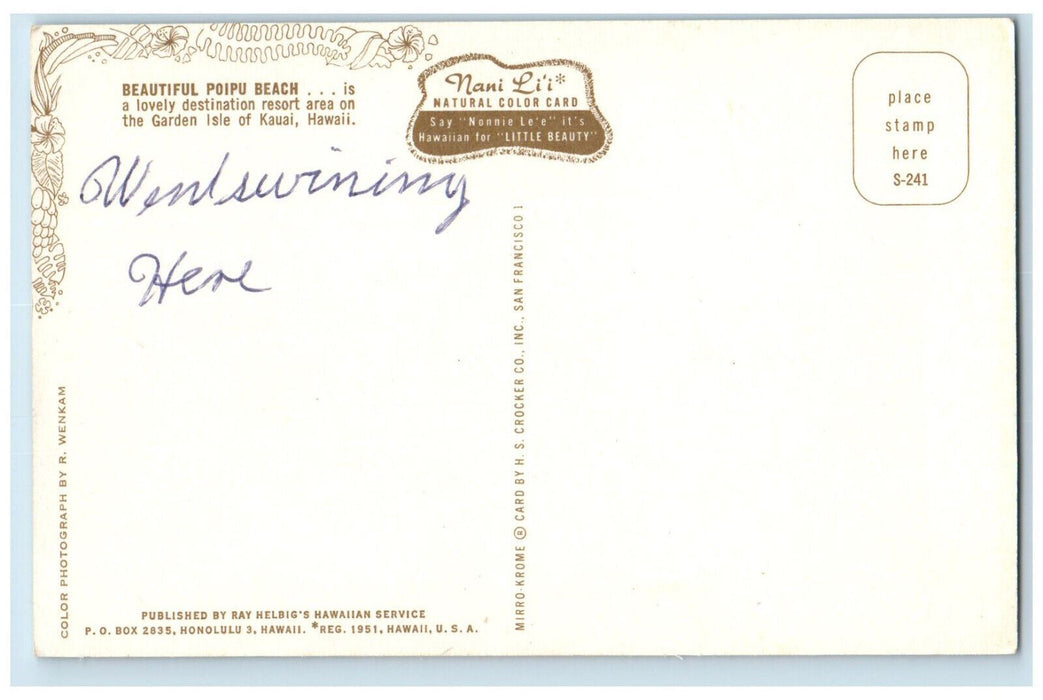 BEAUTIFUL POIPU BEACH . . . is
a lovely destination resort area on
the Garden Isle of Kauai, Hawaii.
Nani Li'i*
NATURAL COLOR CARD
Say "Nonnie Le'e" it's
Hawaiian for "LITTLE BEAUTY"
place
stamp
here
S-241
Went swining
Here
COLOR PHOTOGRAPH BY R. WENKAM
MIRRO-KROME ® CARD BY H. S. CROCKER CO., INC., SAN FRANCISCO 1
PUBLISHED BY RAY HELBIG'S HAWAIIAN SERVICE
P. O. BOX 2835, HONOLULU 3, HAWAII. *REG. 1951, HAWAII, U. S. A.